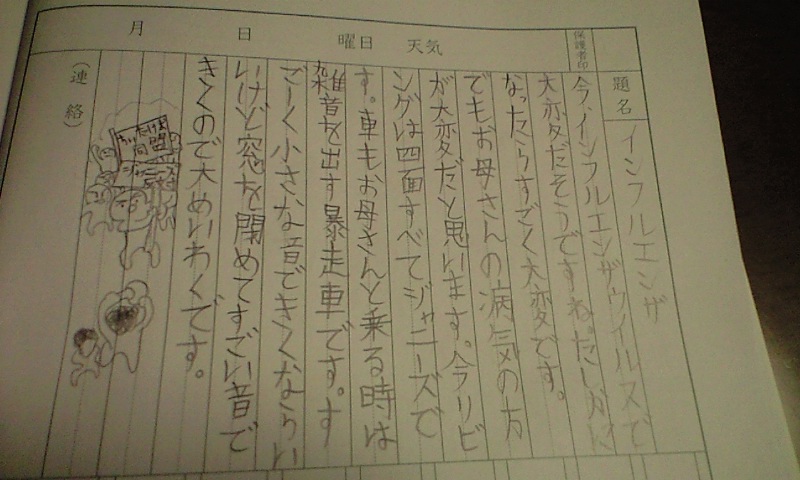 月 日 曜日 天気
保護者印
題名 インフルエンザ
今、インフルエンザウイルスで
大変だそうですね。たしかに
なったらすごく大変です。
でもお母さんの病気の方
が大変だと思います。今リビ
ングは四面すべてジャニーズで
す。車もお母さんと乗る時は
雑音を出す暴走車です。す
ごーく小さな音できくならい
いけど窓を閉めてすごい音で
きくので大めいわくです。
(連絡)